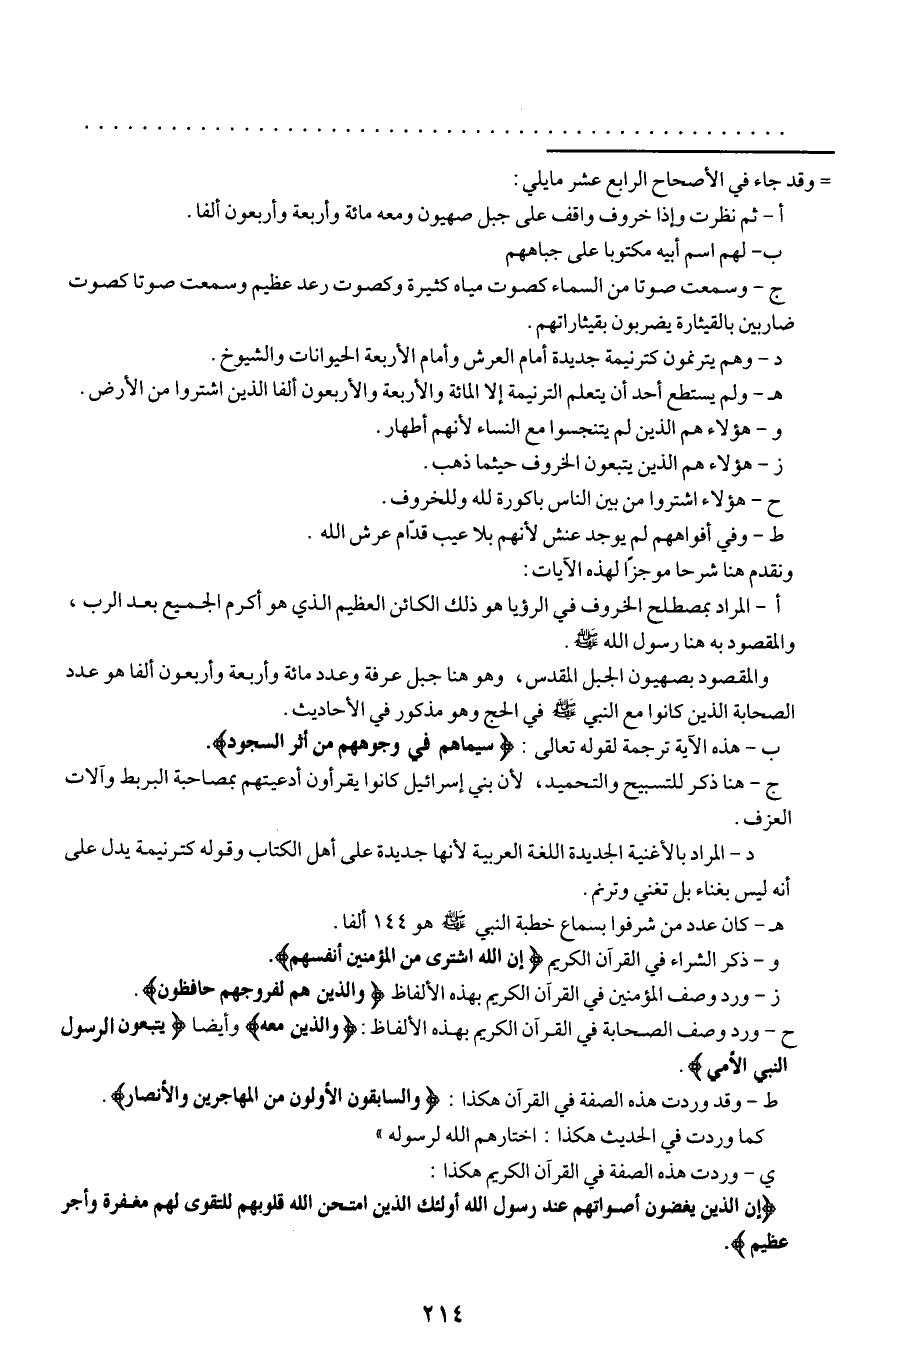 = وقد جاء في الأصحاح الرابع عشر مايلي :
أ - ثم نظرت وإذا خروف واقف على جبل صهيون ومعه مائة وأربعة وأربعون ألفا .
ب- لهم اسم أبيه مكتوبا على جباههم
ج - وسمعت صوتا من السماء كصوت مياه كثيرة وكصوت رعد عظيم وسمعت صوتا كصوت
ضاربين بالقيثارة يضربون بقيثاراتهم .
د - وهم يترنمون كترنيمة جديدة أمام العرش وأمام الأربعة الحيوانات والشيوخ .
هـ - ولم يستطع أحد أن يتعلم الترنيمة إلا المائة والأربعة والأربعون ألفا الذين اشتروا من الأرض .
و - هؤلاء هم الذين لم يتنجسوا مع النساء لأنهم أطهار .
ز - هؤلاء هم الذين يتبعون الخروف حيثما ذهب .
ح - هؤلاء اشتروا من بين الناس باكورة لله وللخروف .
ط - وفي أفواههم لم يوجد عنش لأنهم بلا عيب قدّام عرش الله .
ونقدم هنا شرحا موجزًا لهذه الآيات :
أ - المراد بمصطلح الخروف في الرؤيا هو ذلك الكائن العظيم الذي هو أكرم الجميع بعد الرب ،
والمقصود به هنا رسول الله ﷺ .
والمقصود بصهيون الجبل المقدس ، وهو هنا جبل عرفة وعدد مائة وأربعة وأربعون ألفا هو عدد
الصحابة الذين كانوا مع النبي ﷺ في الحج وهو مذكور في الأحاديث .
ب - هذه الآية ترجمة لقوله تعالى : ﴿ سيماهم في وجوههم من أثر السجود﴾.
ج - هنا ذكر للتسبيح والتحميد ، لأن بني إسرائيل كانوا يقرأون أدعيتهم بمصاحبة البربط وآلات
العزف .
د - المراد بالأغنية الجديدة اللغة العربية لأنها جديدة على أهل الكتاب وقوله كترنيمة يدل على
أنه ليس بغناء بل تغني وترنم .
هـ - كان عدد من شرفوا بسماع خطبة النبي ﷺ هو ١٤٤ ألفا .
و - ذكر الشراء في القرآن الكريم ﴿ إن الله اشترى من المؤمنين أنفسهم﴾.
ز - ورد وصف المؤمنين في القرآن الكريم بهذه الألفاظ ﴿ والذين هم لفروجهم حافظون﴾ .
ح - ورد وصف الصحابة في القرآن الكريم بهذه الألفاظ : ﴿ والذين معه﴾ وأيضا ﴿ يتبعون الرسول
النبي الأمي ﴾ .
ط - وقد وردت هذه الصفة في القرآن هكذا : ﴿ والسابقون الأولون من المهاجرين والأنصار﴾ .
كما وردت في الحديث هكذا : اختارهم الله لرسوله »
ي - وردت هذه الصفة في القرآن الكريم هكذا :
﴿إن الذين يغضون أصواتهم عند رسول الله أولئك الذين امتحن الله قلوبهم للتقوى لهم مغفرة وأجر
عظيم ﴾.
٢١٤